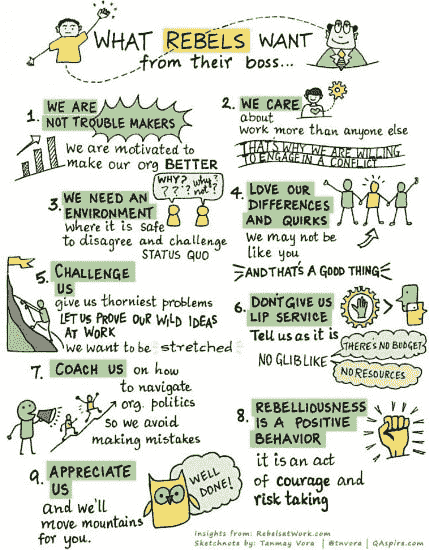 WHAT REBELS WANT
from their boss...
1. WE ARE
NOT TROUBLE MAKERS
We are motivated to
make our org BETTER
2. WE CARE
about
work more than anyone else
THAT'S WHY WE ARE WILLING
TO ENGAGE IN A CONFLICT
WHY? why?
? ? ? why not?
3. WE NEED AN
ENVIRONMENT
where it is safe
to disagree and challenge
STATUS QUO
4. LOVE OUR
DIFFERENCES
AND QUIRKS
We may not be
like you
AND THAT'S A GOOD THING
5. CHALLENGE
US
give us thorniest problems
LET US PROVE OUR WILD IDEAS
AT WORK
we want to be stretched
6. DON'T GIVE US
LIP SERVICE
Tell us as it is
NO GLIB LIKE
THERE'S NO BUDGET
NO RESOURCES
7. COACH US on how
to navigate
org. politics
so we avoid
making mistakes
8. REBELLIOUSNESS
IS A POSITIVE
BEHAVIOR
it is an act
of courage and
risk taking
9. APPRECIATE
US
and we'll
move mountains
for you.
WELL
DONE!
Insights from: Rebelsatwork.com
Sketchnote by: Tanmay Vora | @tnvora | QAspire.com